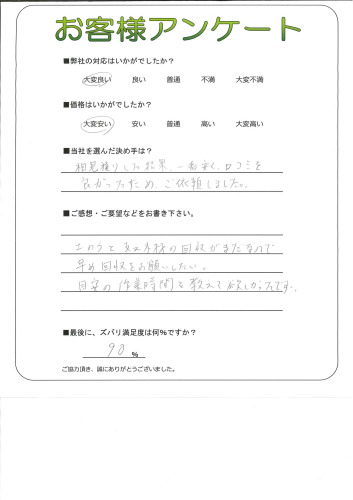 お客様アンケート
■弊社の対応はいかがでしたか?
大変良い 良い 普通 不満 大変不満
■価格はいかがでしたか?
大変安い 安い 普通 高い 大変高い
■当社を選んだ決め手は?
相見積りした結果、一番安く、口コミも
良かったため、ご依頼しました。
■ご感想・ご要望などをお書き下さい。
土のうと 木材の回収がまだなので
早め回収をお願いしたい。
目安の作業時間を教えて欲しかったです。
■最後に、ズバリ満足度は何%ですか?
90 %
ご協力頂き、誠にありがとうございました。